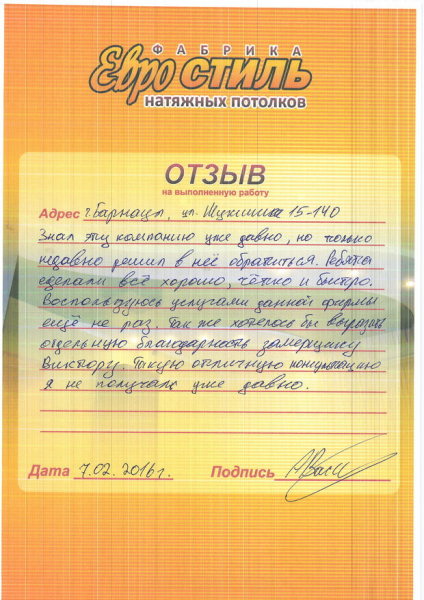 ФАБРИКА
Евро СТИЛЬ
НАТЯЖНЫХ ПОТОЛКОВ
ОТЗЫВ
на выполненную работу
Адрес г. Барнаул, ул. Шукшина 15-140
Знал эту компанию уже давно, но только
недавно решил в неё обратиться. Ребята
сделали всё хорошо, чётко и быстро.
Воспользуюсь услугами данной фирмы
ещё не раз. Так же хотелось бы выразить
отдельную благодарность замерщику
Виктору. Такую отличную консультацию
я не получал уже давно.
Дата 7.02.2016г. Подпись